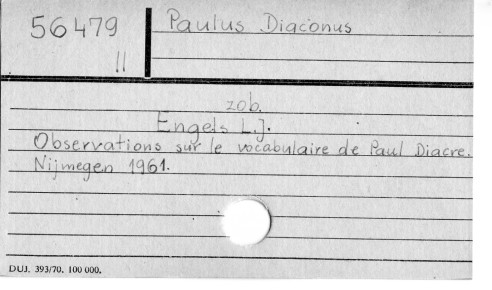 56479
II
Paulus Diaconus
zob.
Engels L.J.
Observations sur le vocabulaire de Paul Diacre.
Nijmegen 1961.
DUJ. 393/70. 100 000.